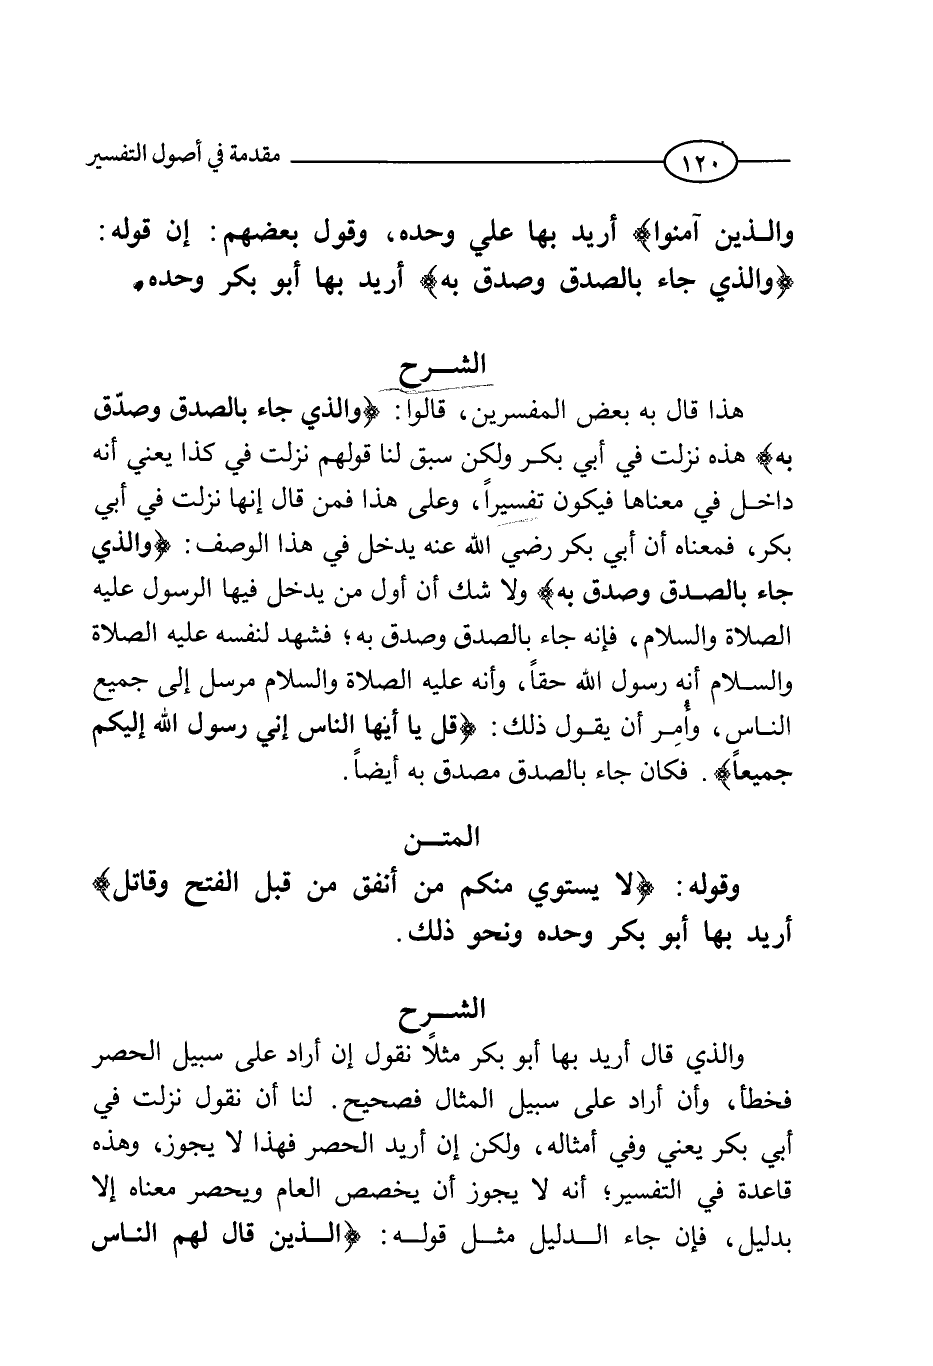 ١٢٠ مقدمة في أصول التفسير
والـذين آمنوا﴾ أريد بها علي وحده، وقول بعضهم: إن قوله:
﴿والذي جاء بالصدق وصدق به﴾ أريد بها أبو بكر وحده.
الشـــرح
هذا قال به بعض المفسرين، قالوا: ﴿والذي جاء بالصدق وصدّق
به﴾ هذه نزلت في أبي بكـر ولكن سبق لنا قولهم نزلت في كذا يعني أنه
داخـل في معناها فيكون تفسيراً، وعلى هذا فمن قال إنها نزلت في أبي
بكر، فمعناه أن أبي بكر رضي الله عنه يدخل في هذا الوصف: ﴿والذي
جاء بالصـدق وصدق به﴾ ولا شك أن أول من يدخل فيها الرسول عليه
الصلاة والسلام، فإنه جاء بالصدق وصدق به؛ فشهد لنفسه عليه الصلاة
والسـلام أنه رسول الله حقاً، وأنه عليه الصلاة والسلام مرسل إلى جميع
النـاس، وأُمِـر أن يقـول ذلك: ﴿قل يا أيها الناس إني رسول الله إليكم
جميعاً﴾. فكان جاء بالصدق مصدق به أيضاً.
المتـــن
وقوله: ﴿لا يستوي منكم من أنفق من قبل الفتح وقاتل﴾
أريد بها أبو بكر وحده ونحو ذلك.
الشـــرح
والذي قال أريد بها أبو بكر مثلاً نقول إن أراد على سبيل الحصر
فخطأ، وأن أراد على سبيل المثال فصحيح. لنا أن نقول نزلت في
أبي بكر يعني وفي أمثاله، ولكن إن أريد الحصر فهذا لا يجوز، وهذه
قاعدة في التفسير؛ أنه لا يجوز أن يخصص العام ويحصر معناه إلا
بدليل، فإن جاء الـــدليل مثــل قولــه: ﴿الــذين قال لهم النـاس